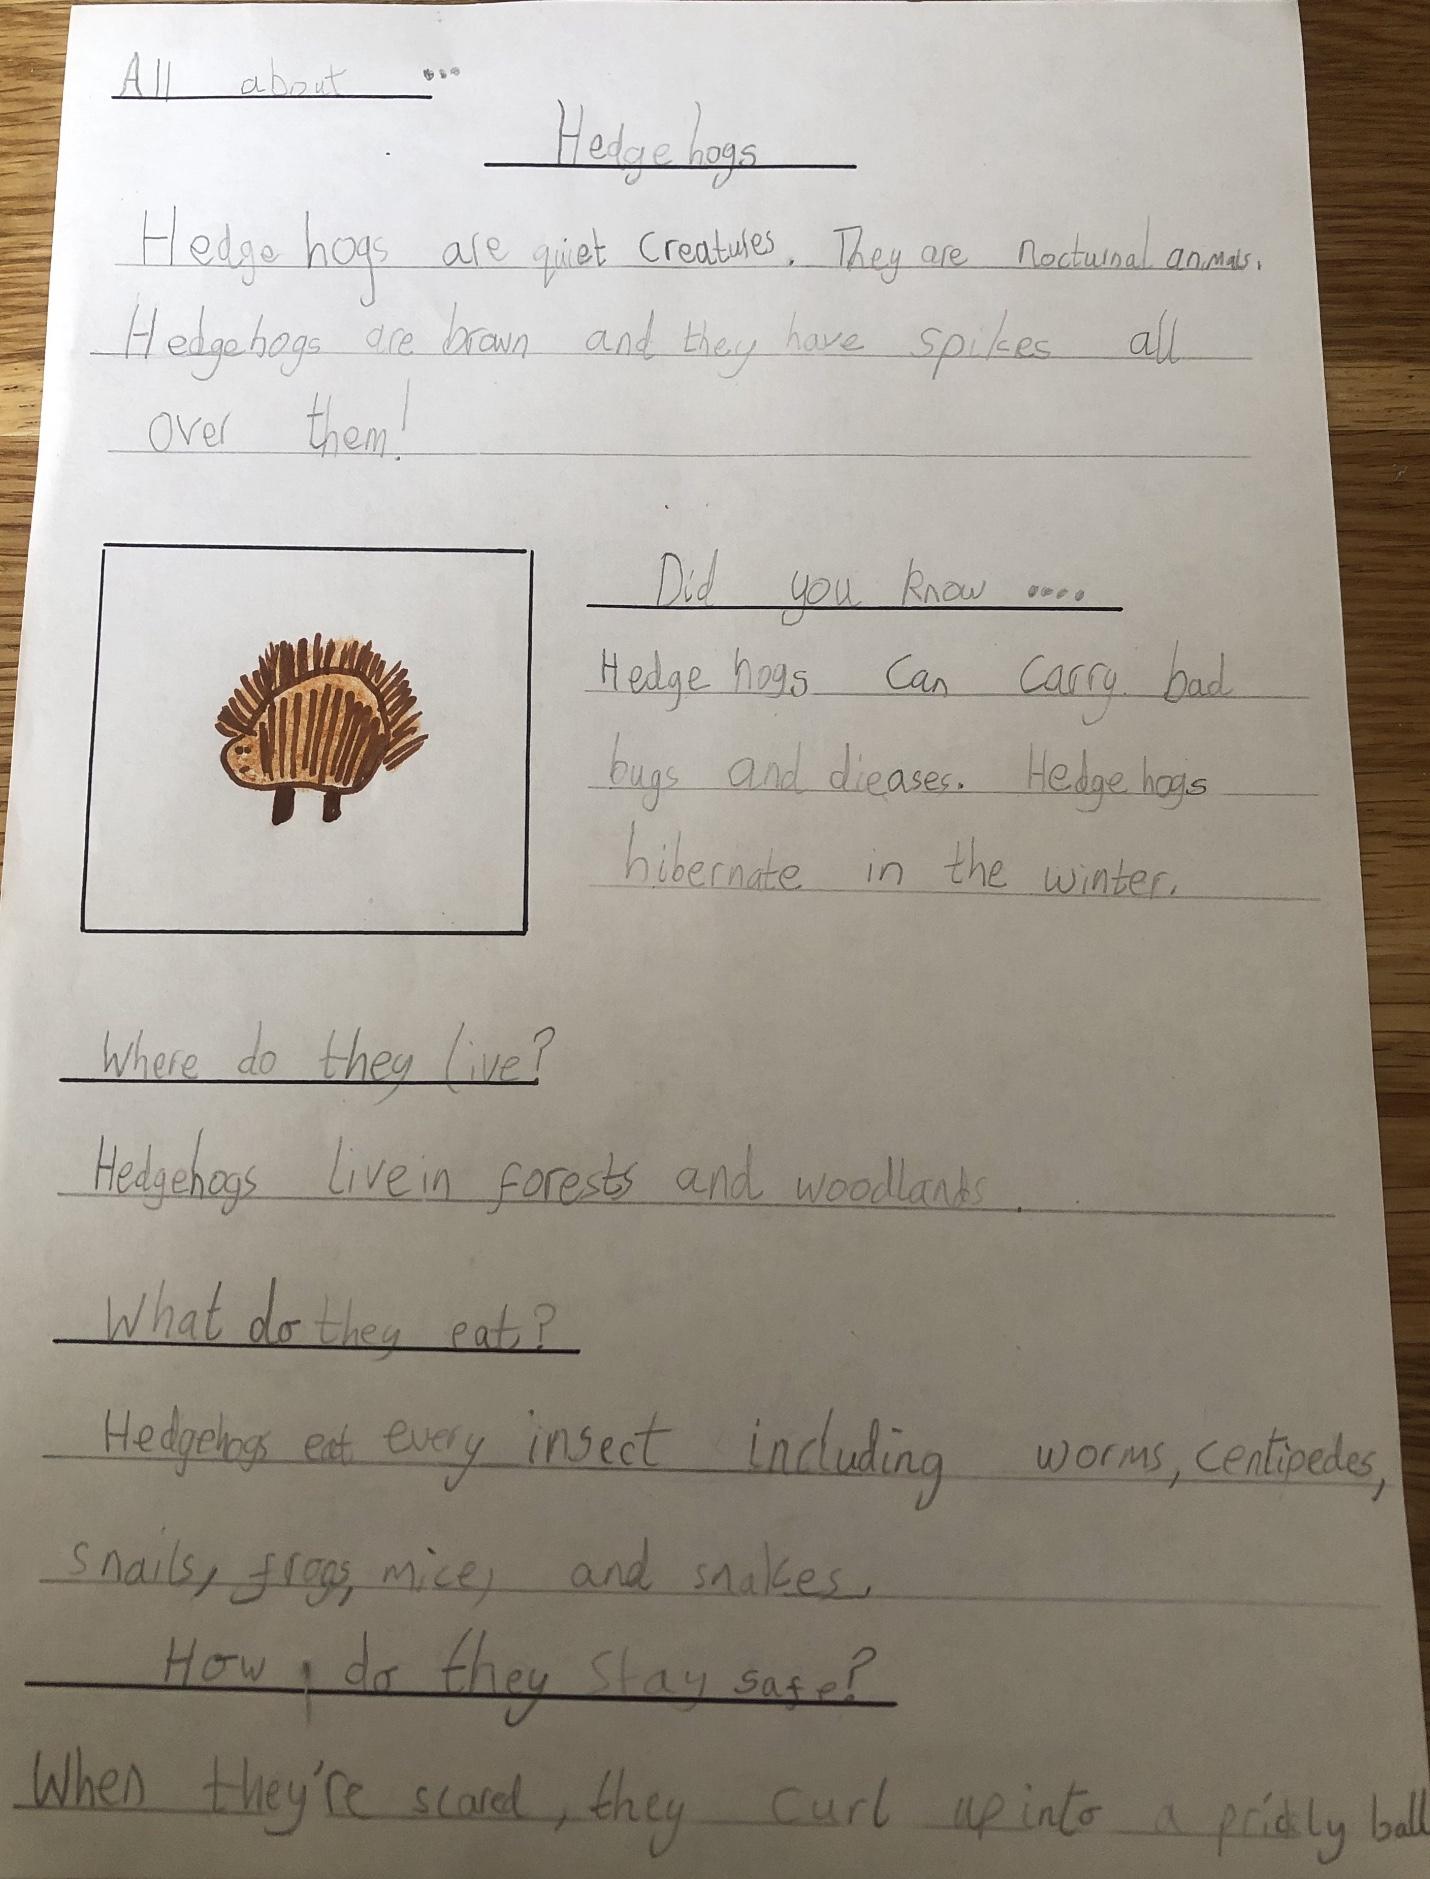 All about ...
Hedge hogs
Hedge hogs are quiet creatures. They are nocturnal animals.
Hedgehogs are brown and they have spikes all
over them!
Did you know ....
Hedge hogs can carry bad
bugs and dieases. Hedge hogs
hibernate in the winter.
Where do they live?
Hedgehogs live in forests and woodlands.
What do they eat?
Hedgehogs eat every insect including worms, centipedes,
snails, frogs, mice, and snakes.
How do they stay safe?
When they're scared, they curl up into a prickly ball